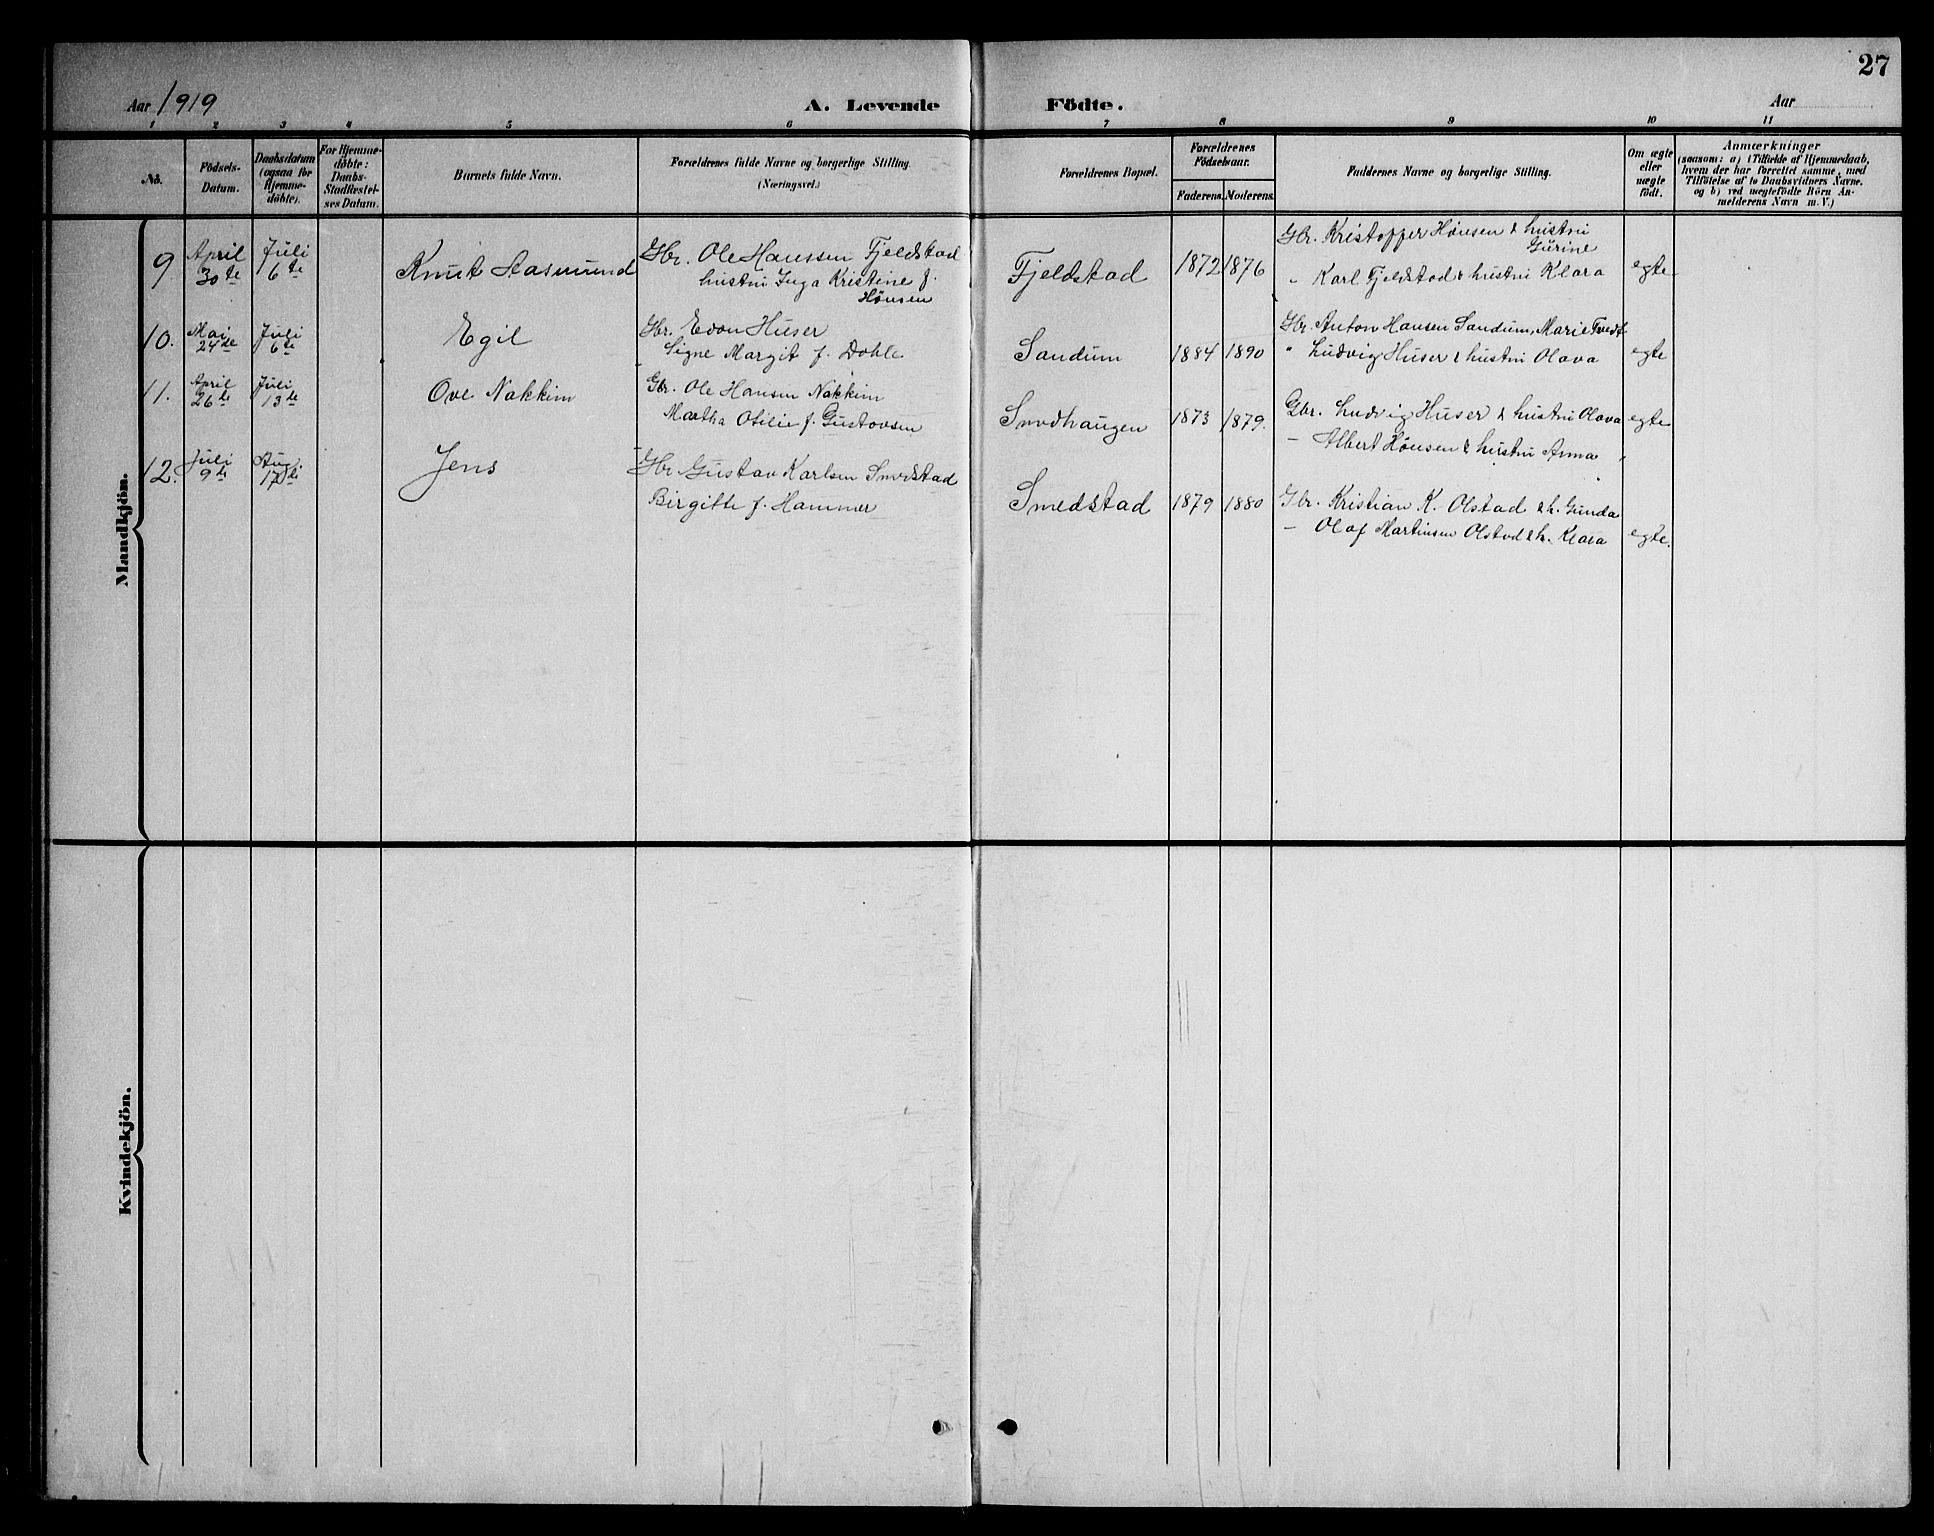 27
Aar 1919 A. Levende Födte. Aar
1 2 3 4 5 6 7 8 9 10 11
No.
Födsels-
Datum.
Daabsdatum
(ogsaa for
Hjemme-
döbte).
For Hjemme-
döbte:
Daabs-
Stadfæstel-
ses Datum.
Barnets fulde Navn.
Forældrenes fulde Navne og borgerlige Stilling.
(Næringsvei.)
Forældrenes Bopæl.
Forældrenes
Födselsaar.
Faderens. Moderens.
Faddernes Navne og borgerlige Stilling.
Om ægte
eller
uægte
födt.
Anmærkninger
(saasom: a) i Tilfælde af Hjemmedaab,
hvem der har forrettet samme, med
Tilföielse af to Daabsvidners Navne,
og b) ved uægtefödte Börn An-
melderens Navn m. V.)
Mandkjön.
9
April
30te
Juli
6te
Knut Aasmund
Gbr. Ole Hanssen Fjeldstad
hustru Inga Kristine f.
Hönsen
Fjeldstad
1872 1876
Gbr. Kristoffer Hönsen & hustru
Gurine
" Karl Fjeldstad & hustru Klara
egte
10.
Mai
24de
Juli
6te
Egil
Gbr. Edon Huser
Signe Margit f. Dohle
Sandum
1884 1890
Gbr. Anton Hansen Sandum, Marie Tvedt
" Ludvig Huser & hustru Olava
egte
11.
April
26te
Juli
13te
Ove Nakkim
Gbr. Ole Hansen Nakkim
Martha Otilie f. Gustovsen
Smedhaugen
1873 1879.
Gbr. Ludvig Huser & hustru Olava
— Albert Hönsen & hustru Anna "
egte
12.
Juli
9de
Aug.
17de
Jens
Gbr. Gustav Karlsen Smedstad
Birgitte f. Hammer
Smedstad
1879 1880
Gbr. Kristian K. Olstad & h. Gunda
— Olaf Martinsen Olstad & h. Klara
egte.
Kvindekjön.